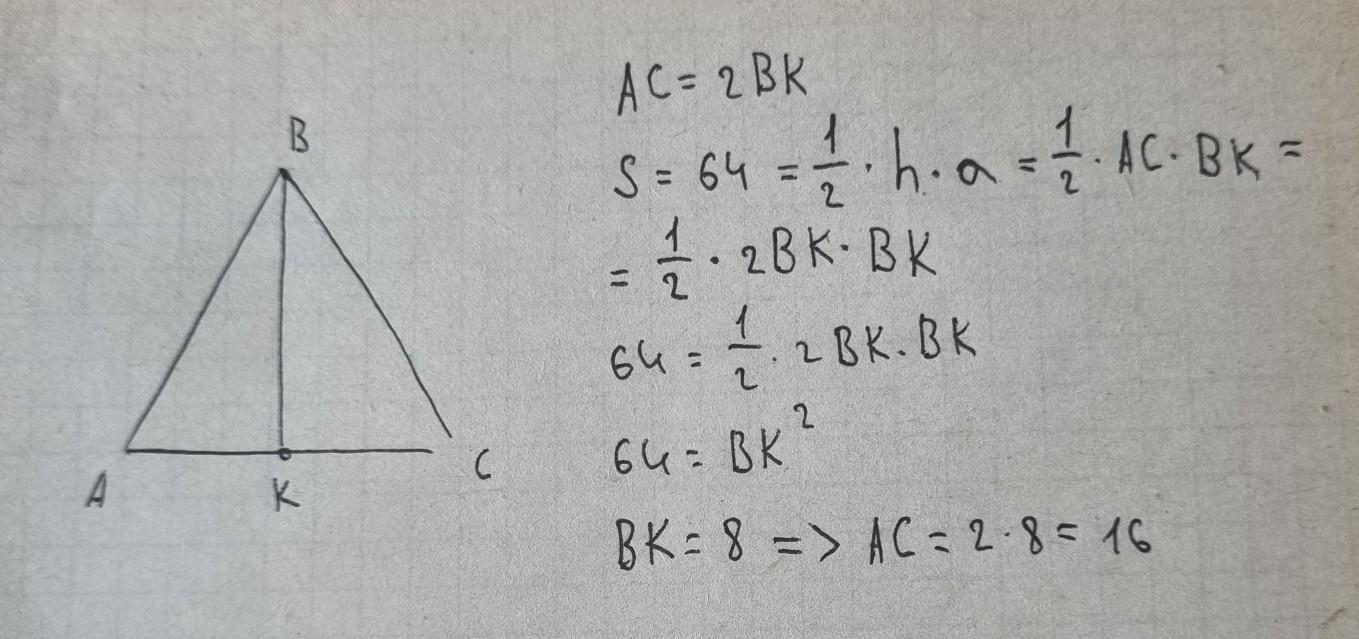 B
A
K
C
AC = 2BK
S = 64 = 1/2 · h · a = 1/2 · AC · BK =
= 1/2 · 2BK · BK
64 = 1/2 · 2BK · BK
64 = BK²
BK = 8 => AC = 2 · 8 = 16